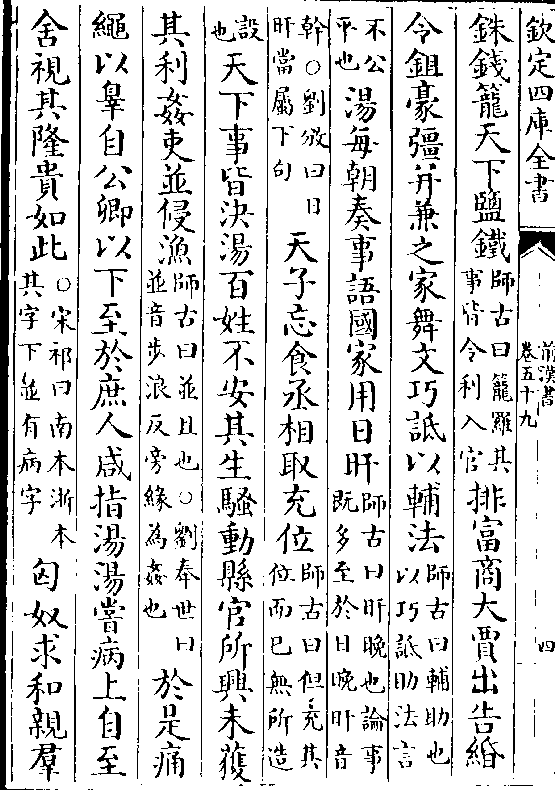 欽定四庫全書
前漢書
卷五十九
四
銖錢籠天下鹽鐵師古曰籠羅其事皆令利入官排富商大賈出告緡
令鉏豪彊并兼之家舞文巧詆以輔法師古曰輔助也以巧詆助法言
不公平也湯每朝奏事語國家用日旰師古曰旰晚也論事既多至於日晚旰音
幹○劉攽曰日旰當屬下句天子忘食丞相取充位師古曰但充其位而已無所造
設也天下事皆決湯百姓不安其生騷動縣官所興未獲
其利姦吏並侵漁師古曰並且也○劉奉世曰並音步浪反旁緣為姦也於是痛
繩以辠自公卿以下至於庶人咸指湯湯嘗病上自至
舍視其隆貴如此○宋祁曰南本浙本其字下並有病字匈奴求和親羣